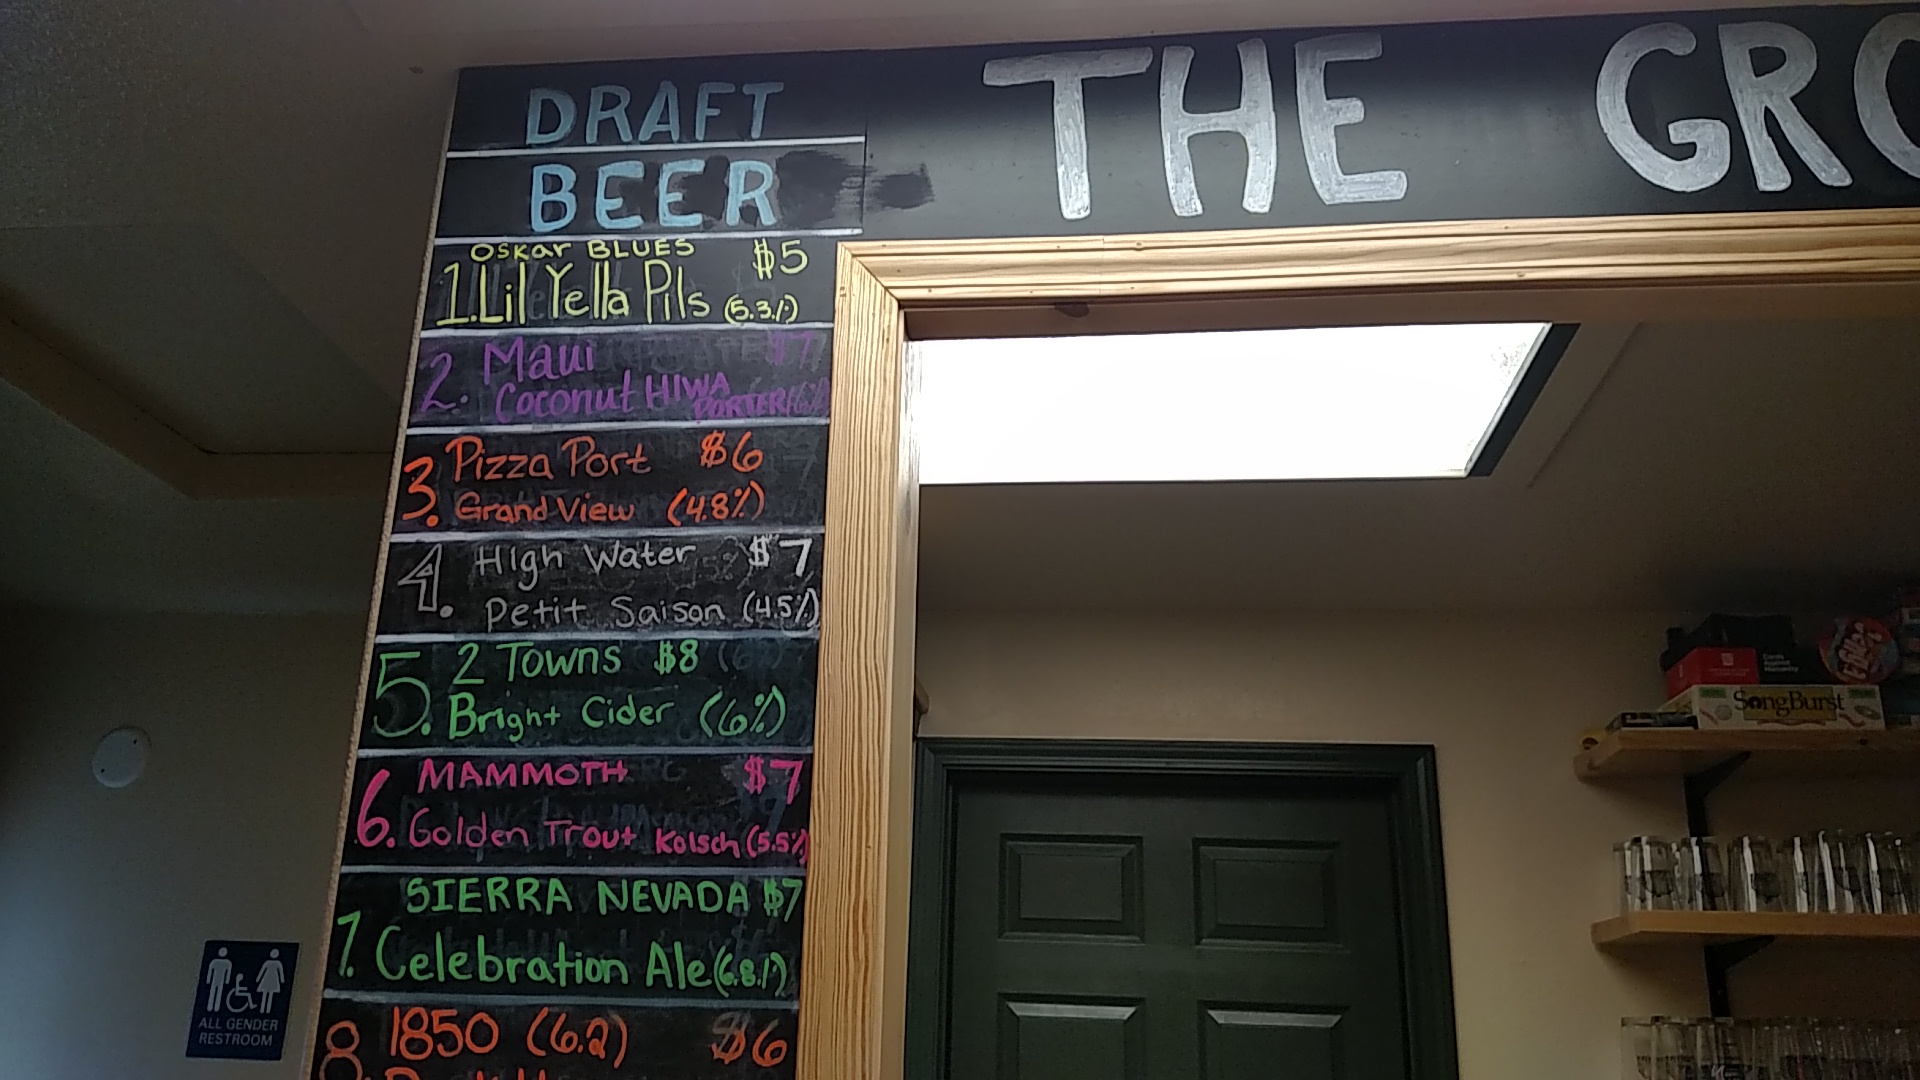 DRAFT
BEER
THE GRO
OSKar BLUES $5
1. Lil Yella Pils (5.3%)
2. Maui $7
Coconut HIWA
PORTER (6%)
3. Pizza Port $6
Grand View (4.8%)
4. High Water $7
Petit Saison (4.5%)
5. 2 TOWNS $8
Bright Cider (6%)
6. MAMMOTH $7
Golden Trout Kolsch (5.5%)
SIERRA NEVADA $7
7. Celebration Ale (6.8%)
8. 1850 (6.2) $6
ALL GENDER
RESTROOM
Cards
Against
Humanity
SongBurst